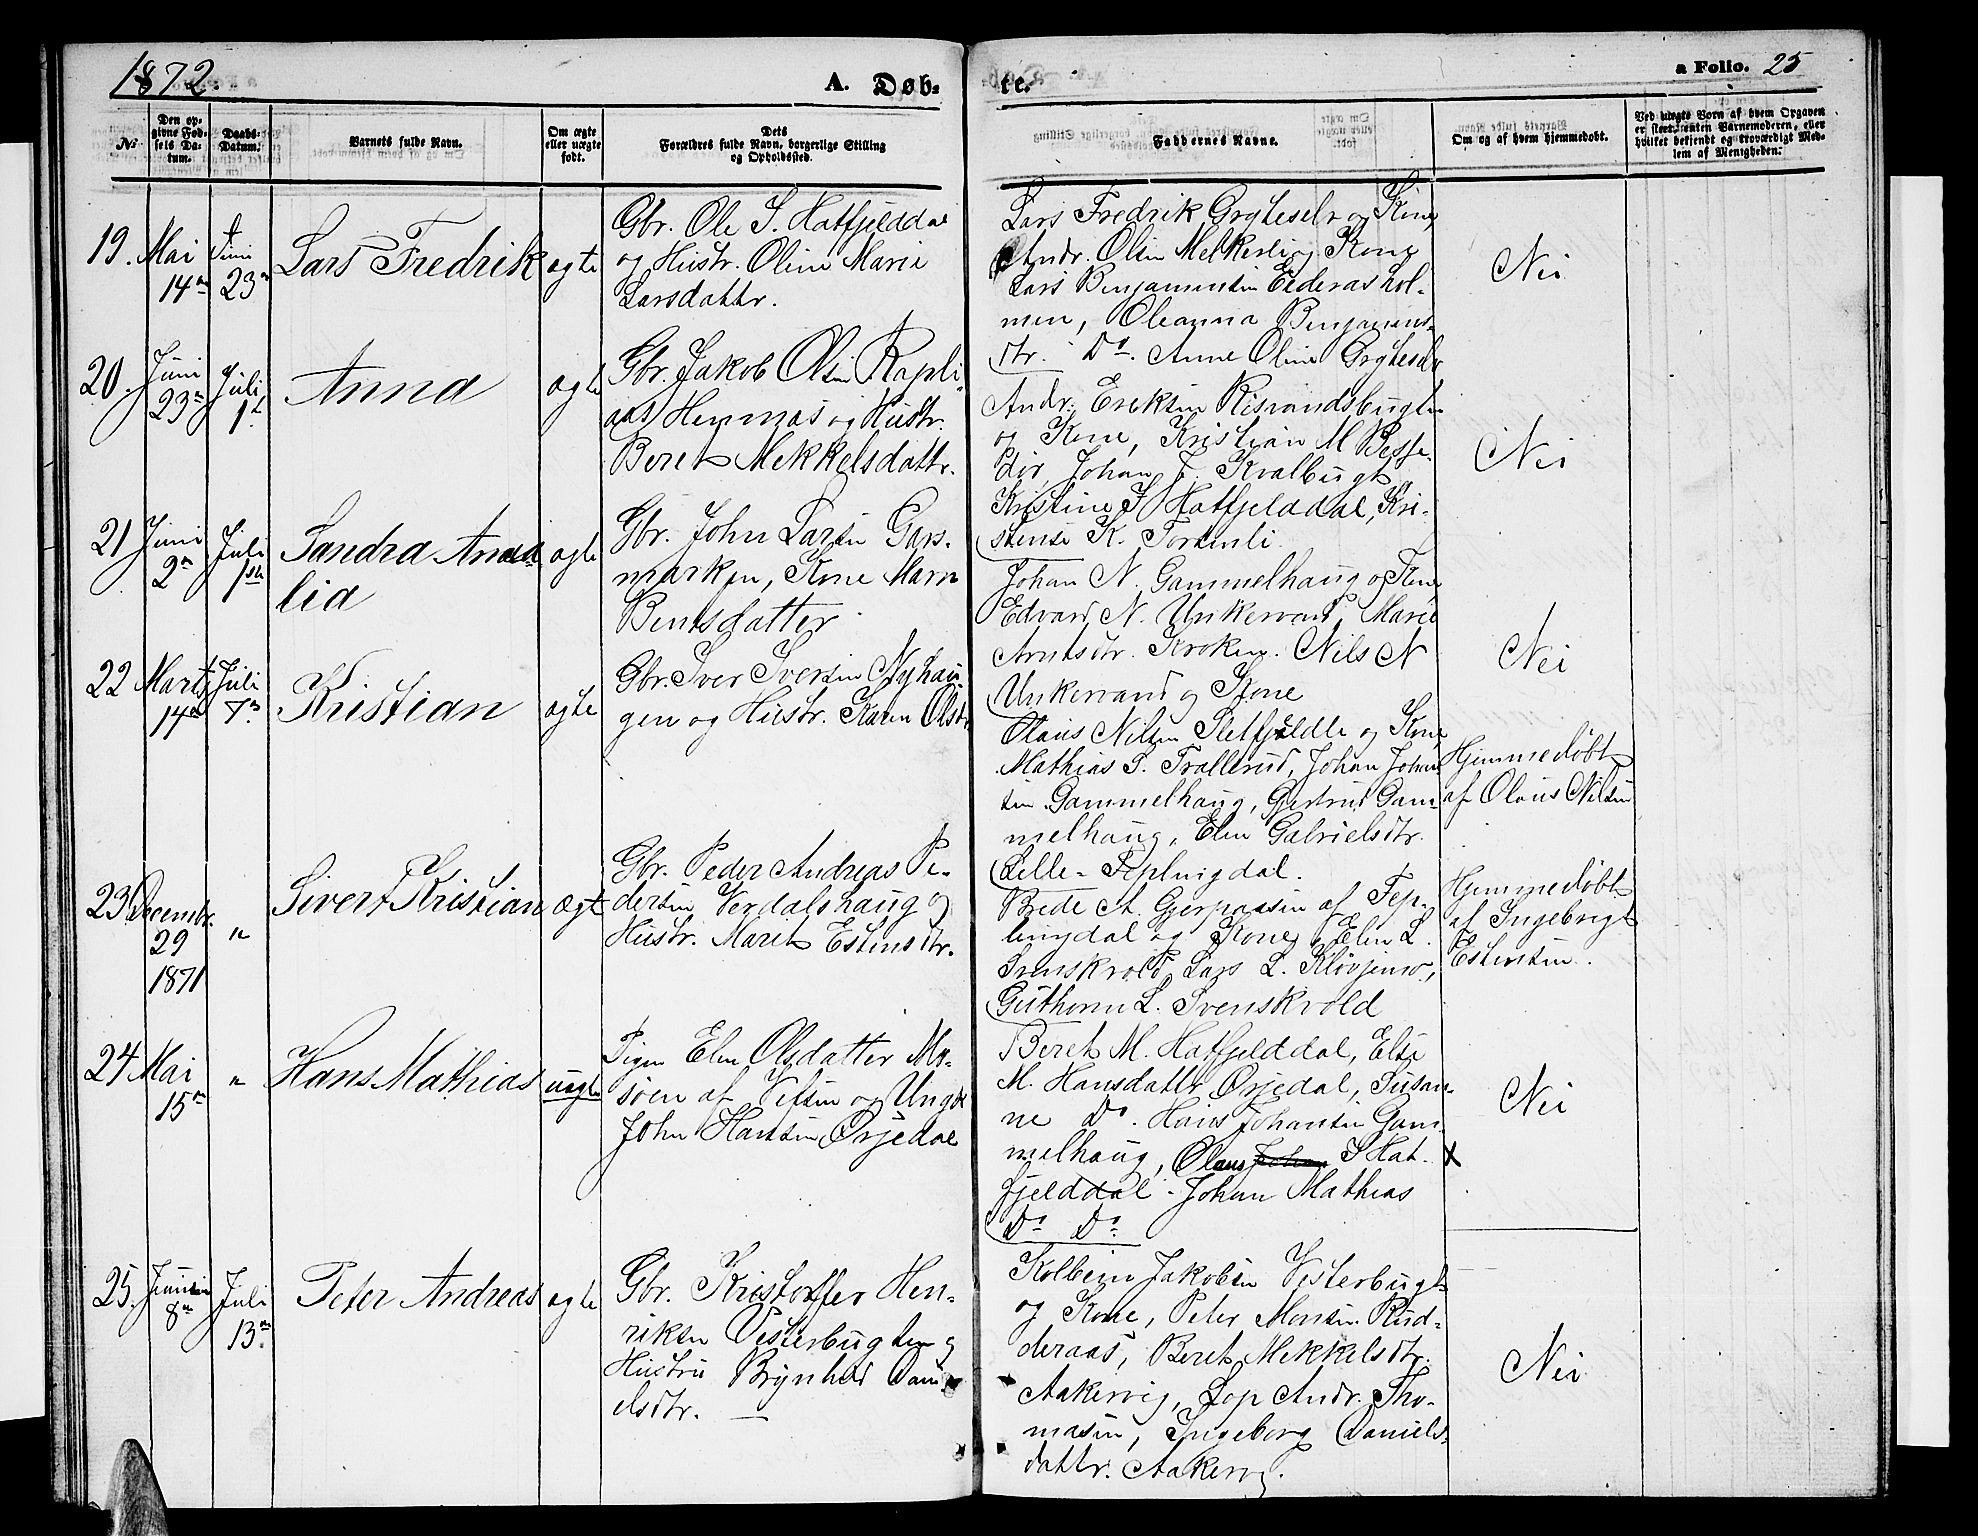 1872.
A. Døb-
te.
a Folio. 25
No.
Den op-
givne Fød-
sels Da-
tum.
Daabs-
Datum.
Barnets fulde Navn.
Om ægte
eller uægte
født.
Dets
Forældres fulde Navn, borgerlige Stilling
og Opholdssted.
Faddernes Navne.
Om og af hvem hjemmedøbt.
Ved uægte Børn af hvem Opgaven
er skeet, enten Barnemoderen, eller
hvilket bekjendt og troværdigt Med-
lem af Menigheden.
19. Mai
14de
Juni
23de
Lars Fredrik
ægte
Gbr. Ole S. Hatfjelddal
og Hustr. Oline Marie
Larsdattr.
Lars Fredrik Gryteselv og Kone,
Andr. Olsen Mekkerli og Kone
Lars Benjaminsen Elderasshol-
men, Oleanna Benjamins-
dtr. Do. Anne Oline Grytesel
Nei
20. Juni
23de
Juli
1st
Anna
ægte
Gbr. Jakob Olsen Rapli-
aas Hemnæs og Hustr.
Beret Mekkelsdattr.
Andr. Eriksen Risvandsbugten
og Kone, Kristian M Besse-
dør, Johan J. Kvalbugt
Kristine J Hatfjelddal, Kri-
stense K. Fortenli.
Nei
21 Juni
2n
Juli
1ste
Sandra Ama
lia
ægte
Gbr. John Larsen Gars-
marken, Kone Maren
Bentsdatter
Johan N. Gammelhaug og Kone
Edvard N. Unkervand, Marie
Arntsdtr. Kroken. Nils N
Unkervand og Kone
Nei
22 Marts
14de
Juli
7de
Kristian
ægte
Gbr. Iver Iversen Nyhau-
gen og Hustr. Karen Olsdtr
Olaus Nilsen Sletfjeldli og Kone,
Mathias S. Trallerud, Johan Johan
sen Gammelhaug, Gjertrud Gam-
melhaug, Elen Gabrielsdtr.
Lille-Fiplingdal.
Hjemmedøbt
af Olaus Nilsen
23 Decembr.
29
1871
"
Sivert Kristian
ægt
Gbr. Peder Andreas Pe-
dersen Verdalshaug og
Hustr. Maret Estensdtr.
Brede A. Gjerpaasen af Fip-
lingdal og Kone, Elen L.
Svenskvold, Lars L. Kløvjemo,
Guthorm L. Svenskvold
Hjemmedøbt
af Ingebrigt
Estensen.
24 Mai
15de
"
Hans Mathias
uægte
Pigen Elen Olsdatter Mo-
søen af Vefsen og Ungk
John Hansen Ørjedal
Beret M. Hatfjelddal, Else
M. Hansdattr Ørjedal, Susan-
ne Do. Hans Johansen Gam-
melhaug, Olaus J Hat-
fjelddal. Johan Mathias
Do Do
Nei
X
25. Juni
8de
Juli
13de
Peter Andreas
ægte
Gbr. Kristoffer Hen-
riksen Vesterbugten og
Hustru Brynhild Dani
elsdtr. —
Kolbein Jakobsen Vesterbugt
og Kone, Peter Monsen Rud-
deraas, Beret Mekkelsdtr.
Aakervig, Lap Andr. Tho-
masen, Ingeborg Daniels-
dattr. Aakervig.
Nei